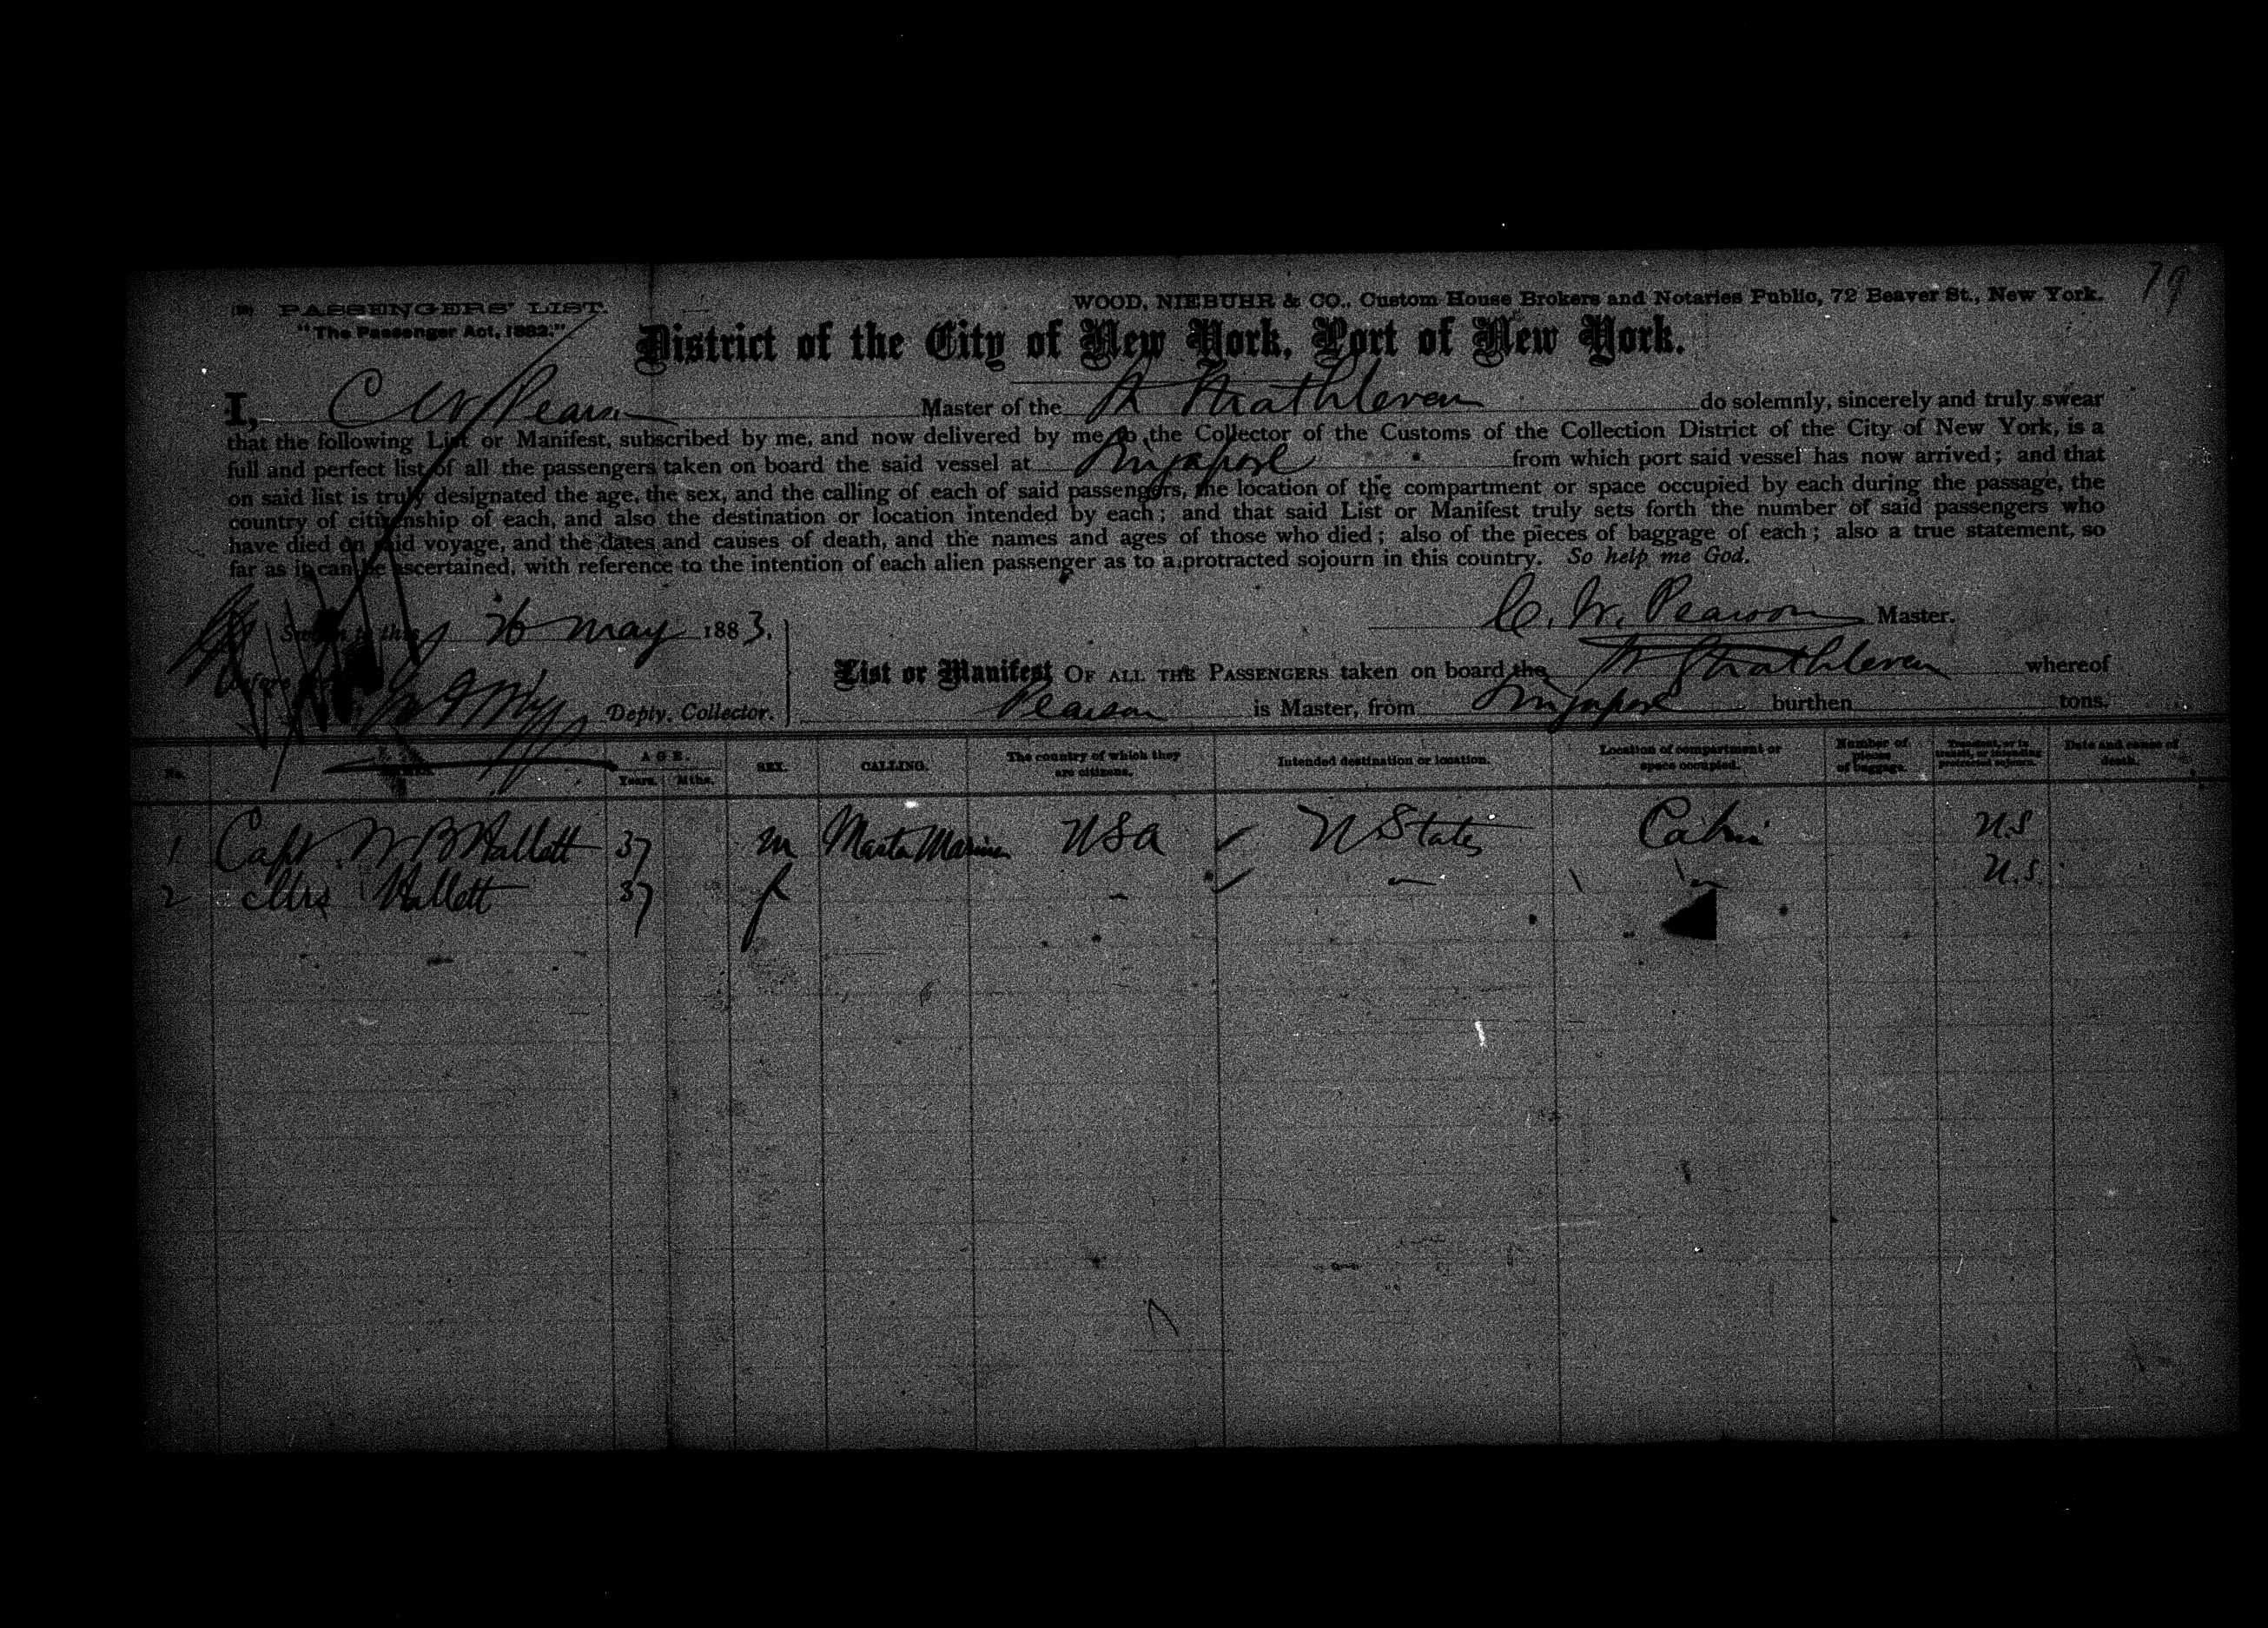 79
PASSENGERS' LIST.
"The Passenger Act, 1882."
WOOD, NIEBUHR & CO., Custom House Brokers and Notaries Public, 72 Beaver St., New York.
District of the City of New York, Port of New York.
I, C W Pearson Master of the Strathleven do solemnly, sincerely and truly swear
that the following List or Manifest, subscribed by me, and now delivered by me to the Collector of the Customs of the Collection District of the City of New York, is a
full and perfect list of all the passengers taken on board the said vessel at Singapore from which port said vessel has now arrived; and that
on said list is truly designated the age, the sex, and the calling of each of said passengers, the location of the compartment or space occupied by each during the passage, the
country of citizenship of each, and also the destination or location intended by each; and that said List or Manifest truly sets forth the number of said passengers who
have died on said voyage, and the dates and causes of death, and the names and ages of those who died; also of the pieces of baggage of each; also a true statement, so
far as it can be ascertained, with reference to the intention of each alien passenger as to a protracted sojourn in this country. So help me God.
Sworn to this 26 May 1883.
C. W. Pearson Master.
before
Deputy Collector.
List or Manifest OF ALL THE PASSENGERS taken on board the Strathleven whereof
Pearson is Master, from Singapore burthen tons.
No. NAMES. AGE. Years. Mths. SEX. CALLING. The country of which they are citizens. Intended destination or location. Location of compartment or space occupied. Number of pieces of baggage. Transient, or in transit, or intending protracted sojourn. Date and cause of death.
1 Capt. W B Hallett 37 m Master Mariner USA U States Cabin U.S
2 Mrs Hallett 37 f U.S.